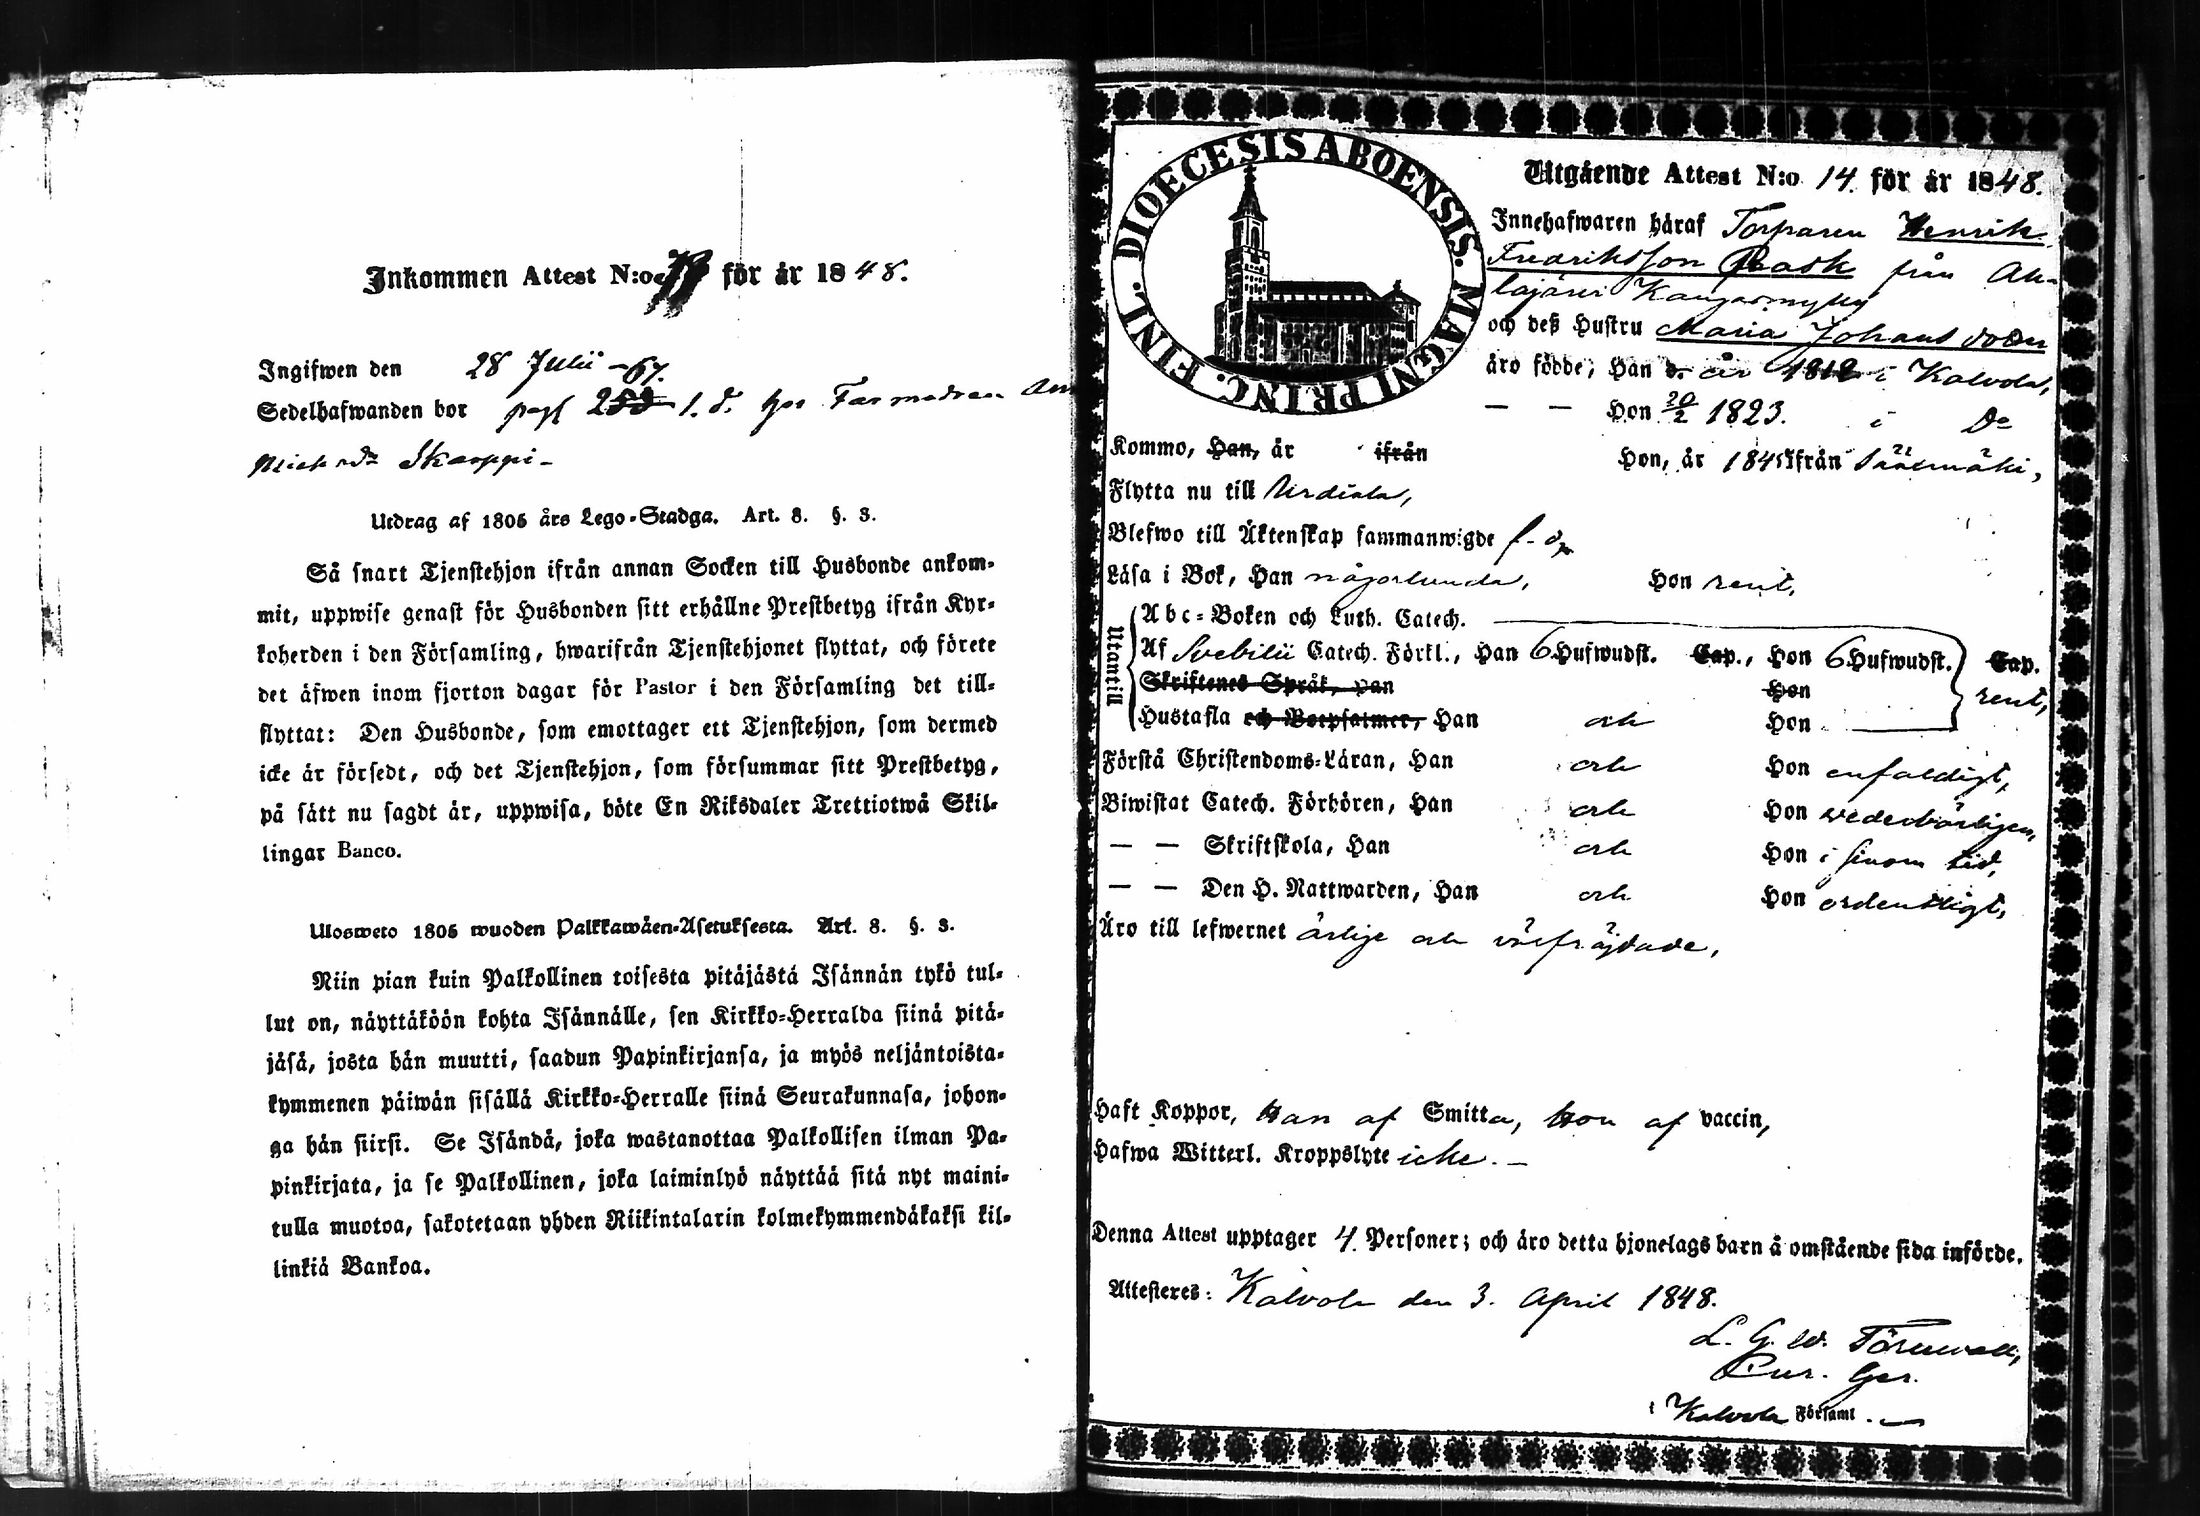 Inkommen Attest N:o för år 1848.
Ingifwen den 28 Julii
Sedelhafwanden bor pag 1. d. hos
Skarppi -
Utdrag af 1805 års Lego-Stadga. Art. 8. §. 3.
Så snart Tjenstehjon ifrån annan Socken till Husbonde ankom-
mit, uppwise genast för Husbonden sitt erhållne Prestbetyg ifrån Kyr-
koherden i den Församling, hwarifrån Tjenstehjonet flyttat, och förete
det äfwen inom fjorton dagar för Pastor i den Församling det till-
flyttat: Den Husbonde, som emottager ett Tjenstehjon, som dermed
icke är försedt, och det Tjenstehjon, som försummar sitt Prestbetyg,
på sätt nu sagdt är, uppwisa, böte En Riksdaler Trettiotwå Skil-
lingar Banco.
Ulosweto 1805 wuoden Palkkawäen-Asetuksesta. Art. 8. §. 3.
Niin pian kuin Palkollinen toisesta pitäjästä Isännän tykö tul-
lut on, näyttäköön kohta Isännälle, sen Kirkko-Herralda siinä pitä-
jäsä, josta hän muutti, saadun Papinkirjansa, ja myös neljäntoista-
kymmenen päiwän sisällä Kirkko-Herralle siinä Seurakunnasa, johon-
ga hän siirsi. Se Isändä, joka wastanottaa Palkollisen ilman Pa-
pinkirjata, ja se Palkollinen, joka laiminlyö näyttää sitä nyt maini-
tulla muotoa, sakotetaan yhden Riikintalarin kolmekymmendäkaksi kil-
linkiä Bankoa.
DIOECESIS ABOENSIS. MAGNI PRINC. FINL.
Utgående Attest N:o 14. för år 1848.
Innehafwaren häraf Torparen Henrik
Fredriksson Rask från Ah-
lajärvi
och deß Hustru Maria Johansdotter
äro födde, Han d. år 1812 i Kalvola,
— — Hon 20/2 1823. i Do
Kommo, Han, år ifrån Hon, år 1845 ifrån Sääxmäki,
Flytta nu till Urdiala,
Blefwo till Äktenskap sammanwigde
Läsa i Bok, Han någorlunda, Hon rent,
Utantill
Abc-Boken och Luth. Catech.
Af Svebilii Catech. Förkl., Han 6 Hufwudst. Cap., Hon 6 Hufwudst. Cap.
Skriftenes Språk, Han Hon rent,
Hustafla och Botpsalmer, Han och Hon
Förstå Christendoms-Läran, Han och Hon enfaldigt,
Biwistat Catech. Förhören, Han och Hon wederbörligen,
— — Skriftskola, Han och Hon i sinom tid,
— — Den H. Nattwarden, Han och Hon ordentligt,
Äro till lefwernet ärlige och välfräjdade,
Haft Koppor, Han af Smitta, Hon af vaccin,
Hafwa Witterl. Kroppslyte icke. —
Denna Attest upptager 4. Personer; och äro detta hjonelags barn å omstående sida införde.
Attesteres: Kalvola den 3. April 1848.
L. G. W. Törnwall,
Cur. Ger.
i Kalvola Församl.